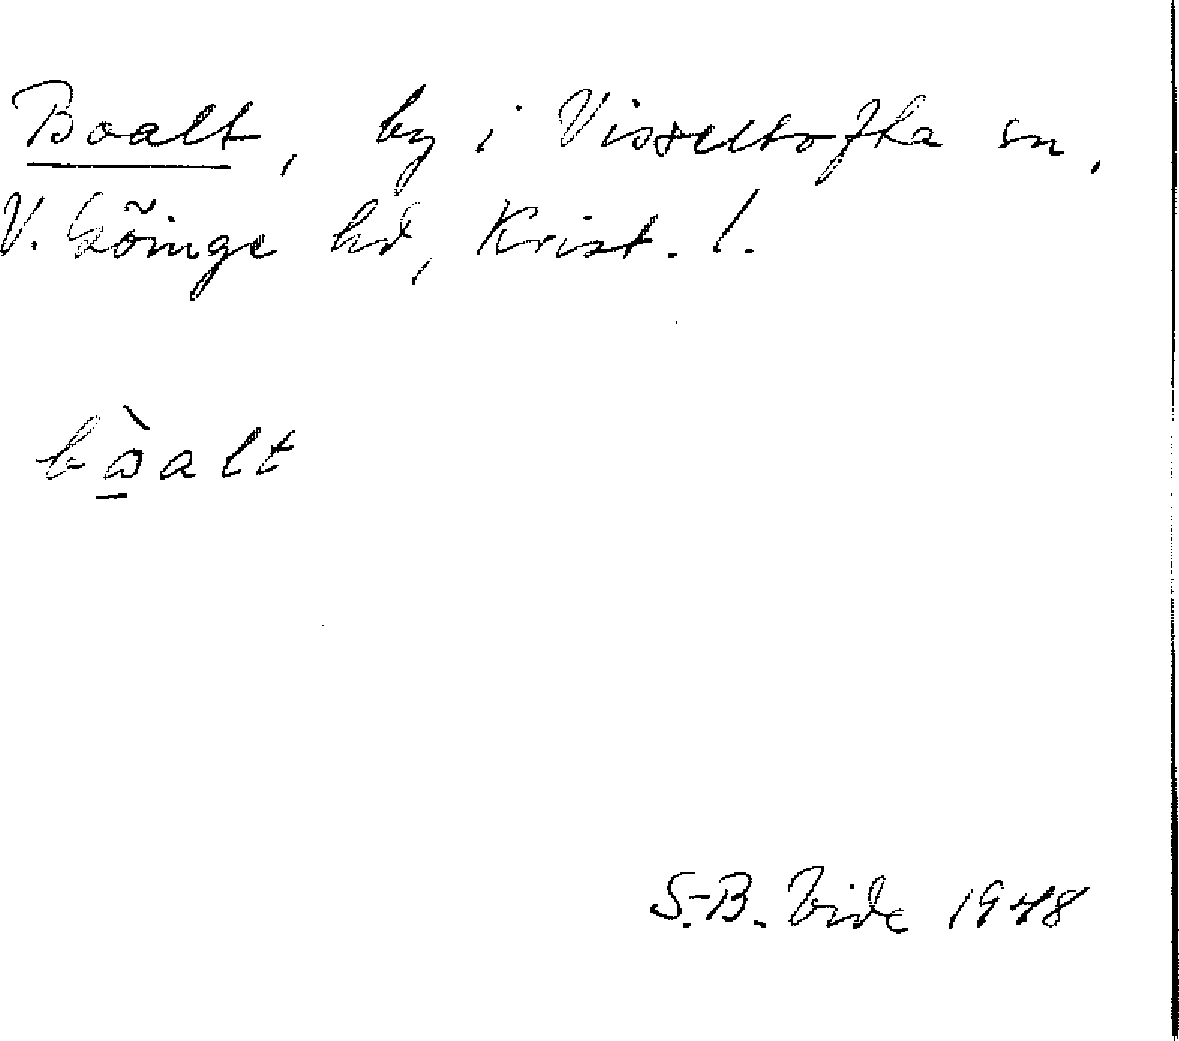 Boalt, by i Visseltofta sn,
V. Göinge hd, Krist. l.
bòalt
S.-B. Vide 1948